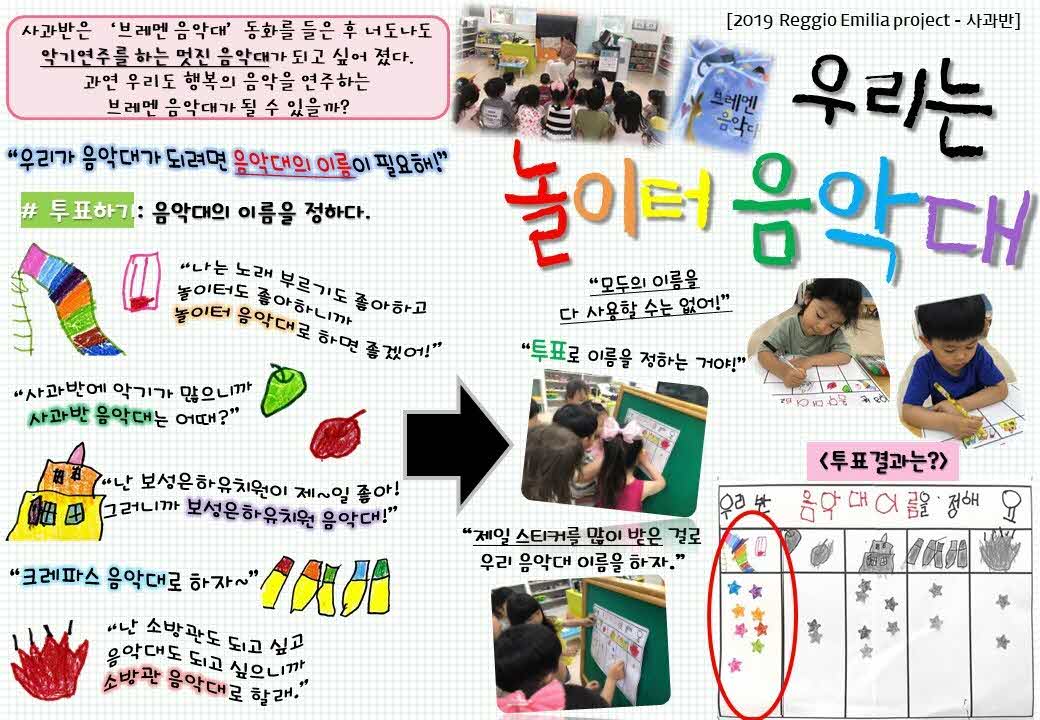 [2019 Reggio Emilia project - 사과반]
우리는
놀이터 음악대
사과반은 ‘브레멘 음악대’ 동화를 들은 후 너도나도
악기연주를 하는 멋진 음악대가 되고 싶어 졌다.
과연 우리도 행복의 음악을 연주하는
브레멘 음악대가 될 수 있을까?
브레멘
음악대
“우리가 음악대가 되려면 음악대의 이름이 필요해!”
# 투표하기: 음악대의 이름을 정하다.
“나는 노래 부르기도 좋아하고
놀이터도 좋아하니까
놀이터 음악대로 하면 좋겠어!”
“사과반에 악기가 많으니까
사과반 음악대는 어때?”
“난 보성은하유치원이 제~일 좋아!
그러니까 보성은하유치원 음악대!”
“크레파스 음악대로 하자~”
“난 소방관도 되고 싶고
음악대도 되고 싶으니까
소방관 음악대로 할래.”
“모두의 이름을
다 사용할 수는 없어!”
“투표로 이름을 정하는 거야!”
“제일 스티커를 많이 받은 걸로
우리 음악대 이름을 하자.”
<투표결과는?>
우리 반 음악대 이름을 정해요